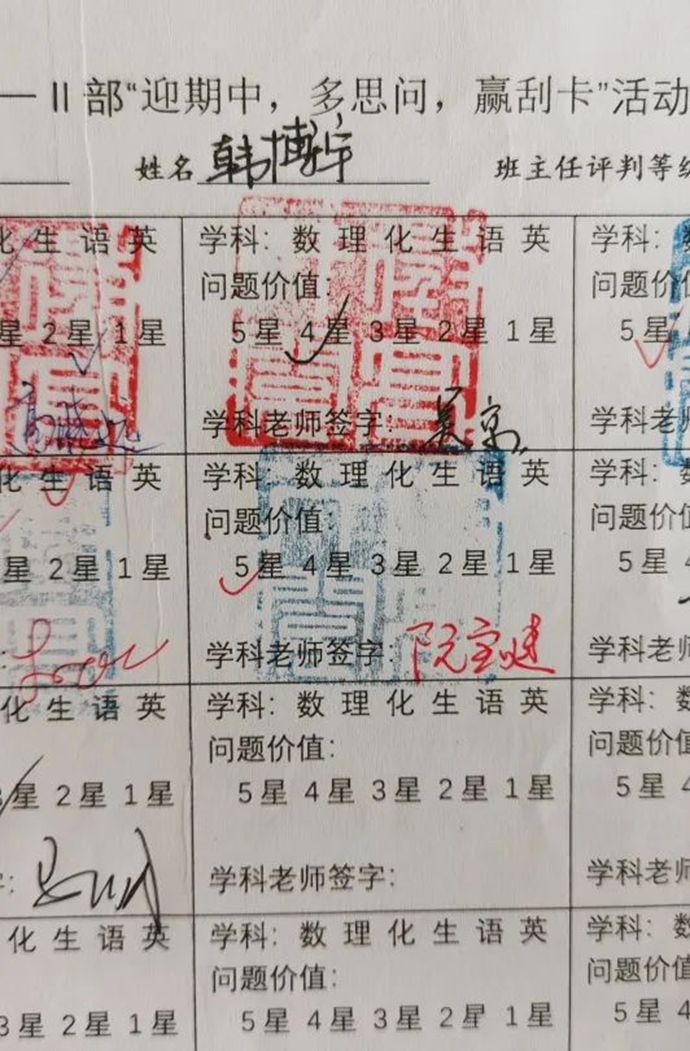 一 II 部“迎期中，多思问，赢刮卡”活动
姓名 韩博宇 班主任评判等级
化 生 语 英
星 2星 1星
学科：数 理 化 生 语 英
问题价值：
5星 4星 3星 2星 1星
学科老师签字：吴京
学科：数
问题价值
5星
学科老师
化 生 语 英
星 2星 1星
学科：数 理 化 生 语 英
问题价值：
5星 4星 3星 2星 1星
学科老师签字：阮宝健
学科：数
问题价值
5星 4
学科老师
化 生 语 英
3星 2星 1星
学科：数 理 化 生 语 英
问题价值：
5星 4星 3星 2星 1星
学科老师签字：
学科：数
问题价值
5星 4
学科老师
化 生 语 英
3星 2星 1星
学科：数 理 化 生 语 英
问题价值：
5星 4星 3星 2星 1星
学科：数
问题价值
5星 4